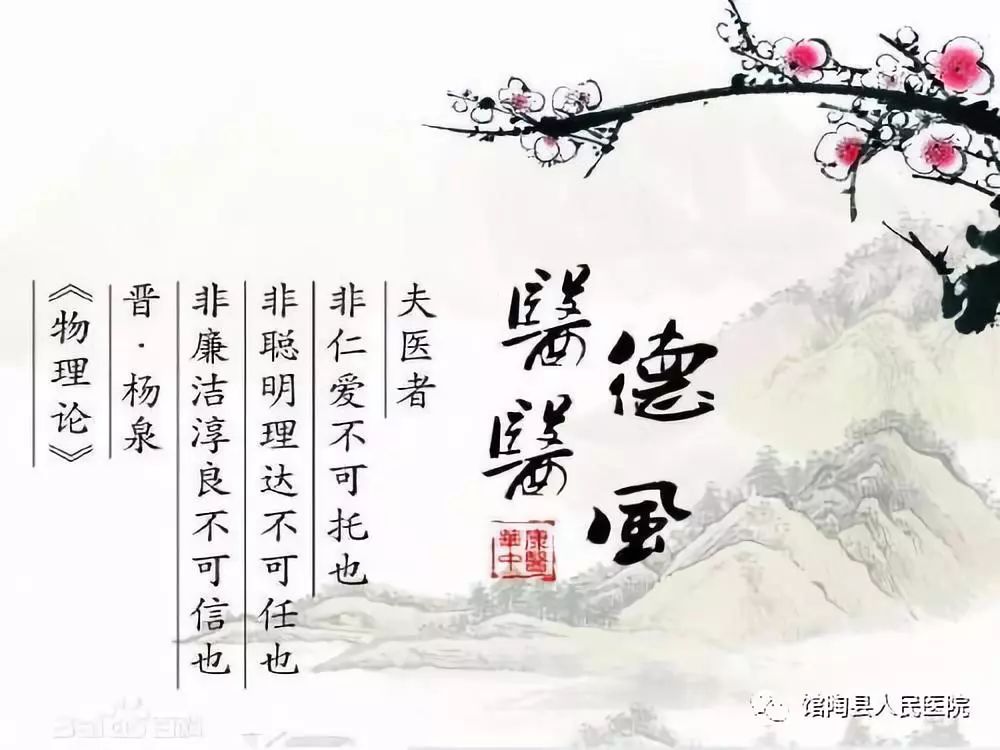 醫德
醫風
康醫
華中
夫医者
非仁爱不可托也
非聪明理达不可任也
非廉洁淳良不可信也
晋·杨泉
《物理论》
馆陶县人民医院